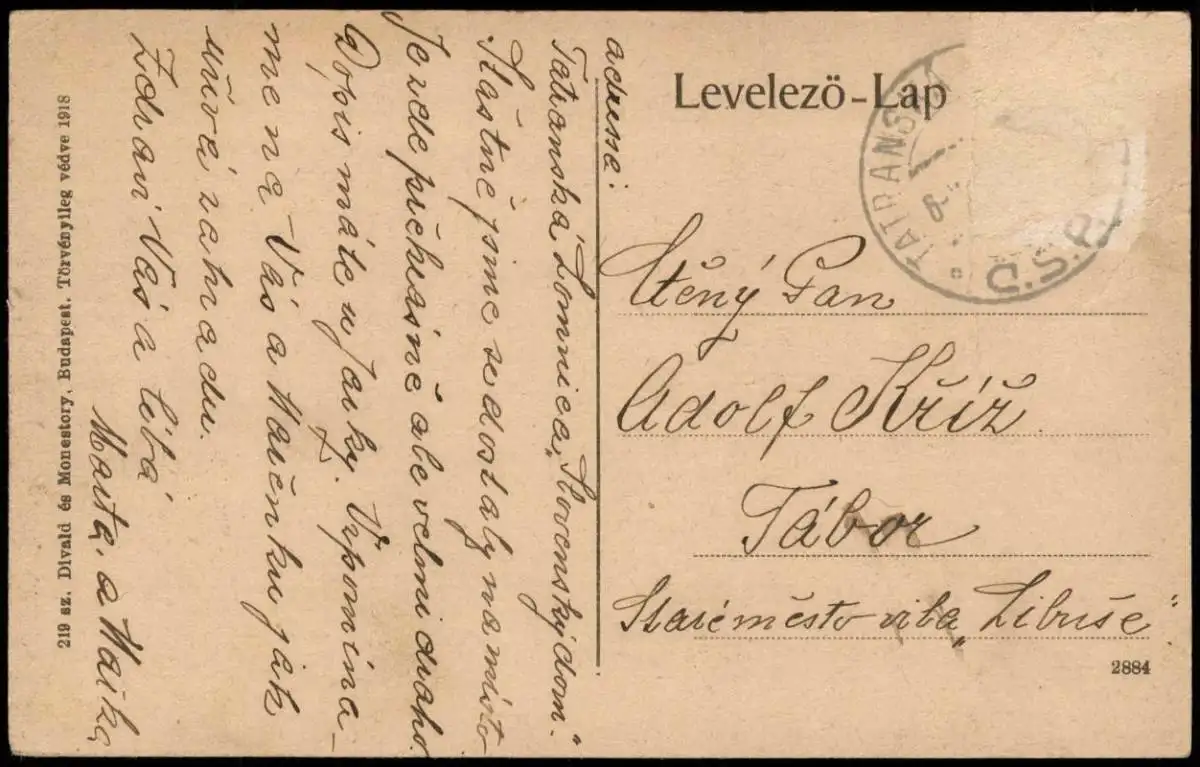 Levelező-Lap
TATRANSKÁ
Č.S.P.
Ctěný Pan
Adolf Kříž
Tábor
Staré město vila „Libuše“
2884
adresse:
Tatranská Lomnica „Slovenský dom“
Štastně jsme se dostaly na místo
Je zde překrásně ale velmi draho.
Dopis máte u Jarky. Vzpomína-
me na Vás a Mařenku jak
zahradu.
Zdraví Vás a líbá
Marta. a
219 sz. Divald és Monostory, Budapest. Törvényileg védve 1918